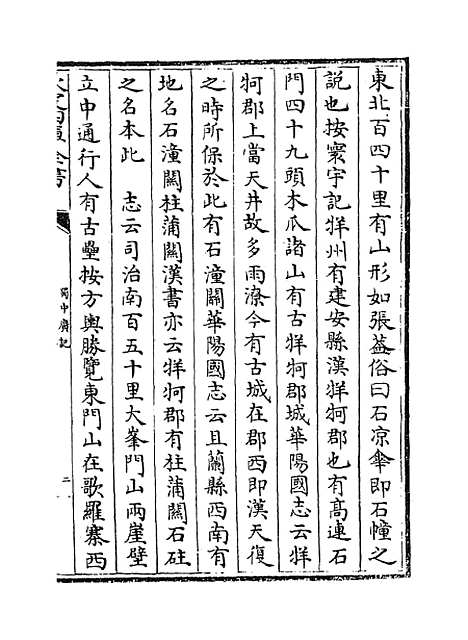 東北百四十里有山形如張蓋俗曰石凉傘即石幢之
說也按寰宇記牂州有建安縣漢牂牁郡也有高連石
門四十九頭木瓜諸山有古牂牁郡城華陽國志云牂
牁郡上當天井故多雨潦今有古城在郡西即漢天復
之時所保於此有石潼關華陽國志云且蘭縣西南有
地名石潼關柱蒲關漢書亦云牂牁郡有柱蒲關石砫
之名本此 志云司治南百五十里大峯門山兩崖壁
立中通行人有古壘按方輿勝覽東門山在歌羅寨西
蜀中廣記